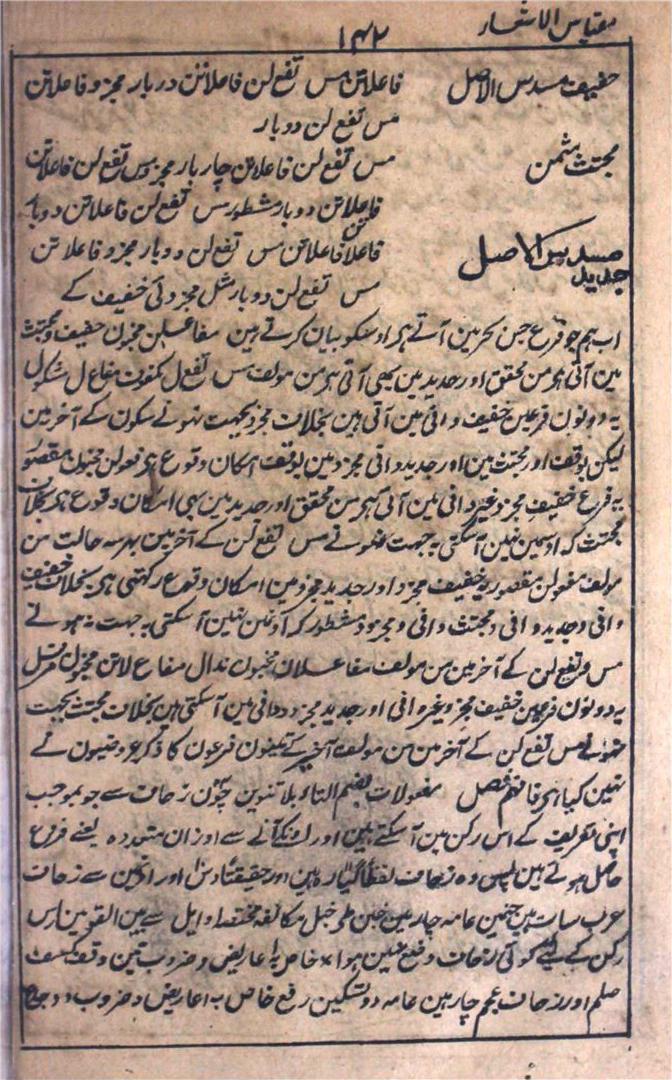 مقیاس الاشعار
۱۴۲
خفیف مسدس الاصل فاعلاتن مس تفع لن فاعلاتن دربار مجزو فاعلاتن
مس تفع لن دوبار
مجتث مثمن مس تفع لن فاعلاتن چاربار مجزو مس تفع لن فاعلاتن
فاعلاتن دوبار مشطور مس تفع لن فاعلاتن دوبار
جدید مسدس الاصل فاعلاتن فاعلاتن مس تفع لن دوبار مجزو فاعلاتن
مس تفع لن دوبار مثل مجزوئی خفیف کے
اب ہم جو فرع جس بحر مین آتے ہر اوسکو بیان کرتے ہین مفاعلن مخبون خفیف و مجتث
مین آتی ہر من محقق اور جدید مین بھی آتی ہر من مولف مس تفع ل مکفوف مفاعل مشکول
یہ دونون فرعین خفیف وافی مین آتی ہین بخلاف مجزو بجہت نہونے سکون کے آخر مین
لیکن بوقف اور مجتث مین اور جدید وافی مجزو مین بوقف امکان وقوع ہر فعولن مخبون مقصور
یہ فرع خفیف مجزو غیر وافی مین آتی ہر من محقق اور جدید مین بھی امکان وقوع ہر بخلاف
مجتث کہ اوسمین نہین آسکتی بہ جہت نہونے مس تفع لن کے آخر مین بہر سہ حالت من
مولف مفعولن مقصور یہ خفیف مجزو اور جدید مجزو من امکان وقوع رکھتی ہی بخلاف خفیف
وافی و جدید وافی و مجتث وافی و مجزو و مشطور کہ اونمین نہین آسکتی بہ جہت نہ ہونے
مس تفع لن کے آخر مین من مولف مفاعلان مخبون مذال مفاعلاتن مخبون مرفل
یہ دونون فرعین خفیف مجزو غیر وافی اور جدید مجزو و وافی مین آسکتی ہین بخلاف مجتث بجہت
نہونے مس تفع لن کے آخر مین من مولف آخر کے تینون فرعون کا ذکر عروضیون نے
نہین کیا ہر فافہم فصل مفعولات بضم التاء بلا تنوین چون زحاف سے جو بموجب
اپنی تعریف کے اس رکن مین آسکتے ہین اور اونکے آنے سے اوزان متعددہ یعنے فروع
حاصل ہوتے ہین پس وہ زحاف لفظاً گیارہ ہین اور حقیقتاً دس اور انمین سے زحاف
عرب سات ہین جنمین عامہ چار ہین خبن طی خبل مکانفہ اوایل سے بین القومین اس
رکن کے لیے کوئی زحاف وضع نہین ہوا خاص بہ اعاریض و ضروب تین وقف کسف
صلم اور زحاف عجم چار ہین عامہ دو تسکین رفع خاص بہ اعاریض و ضروب دو جدع